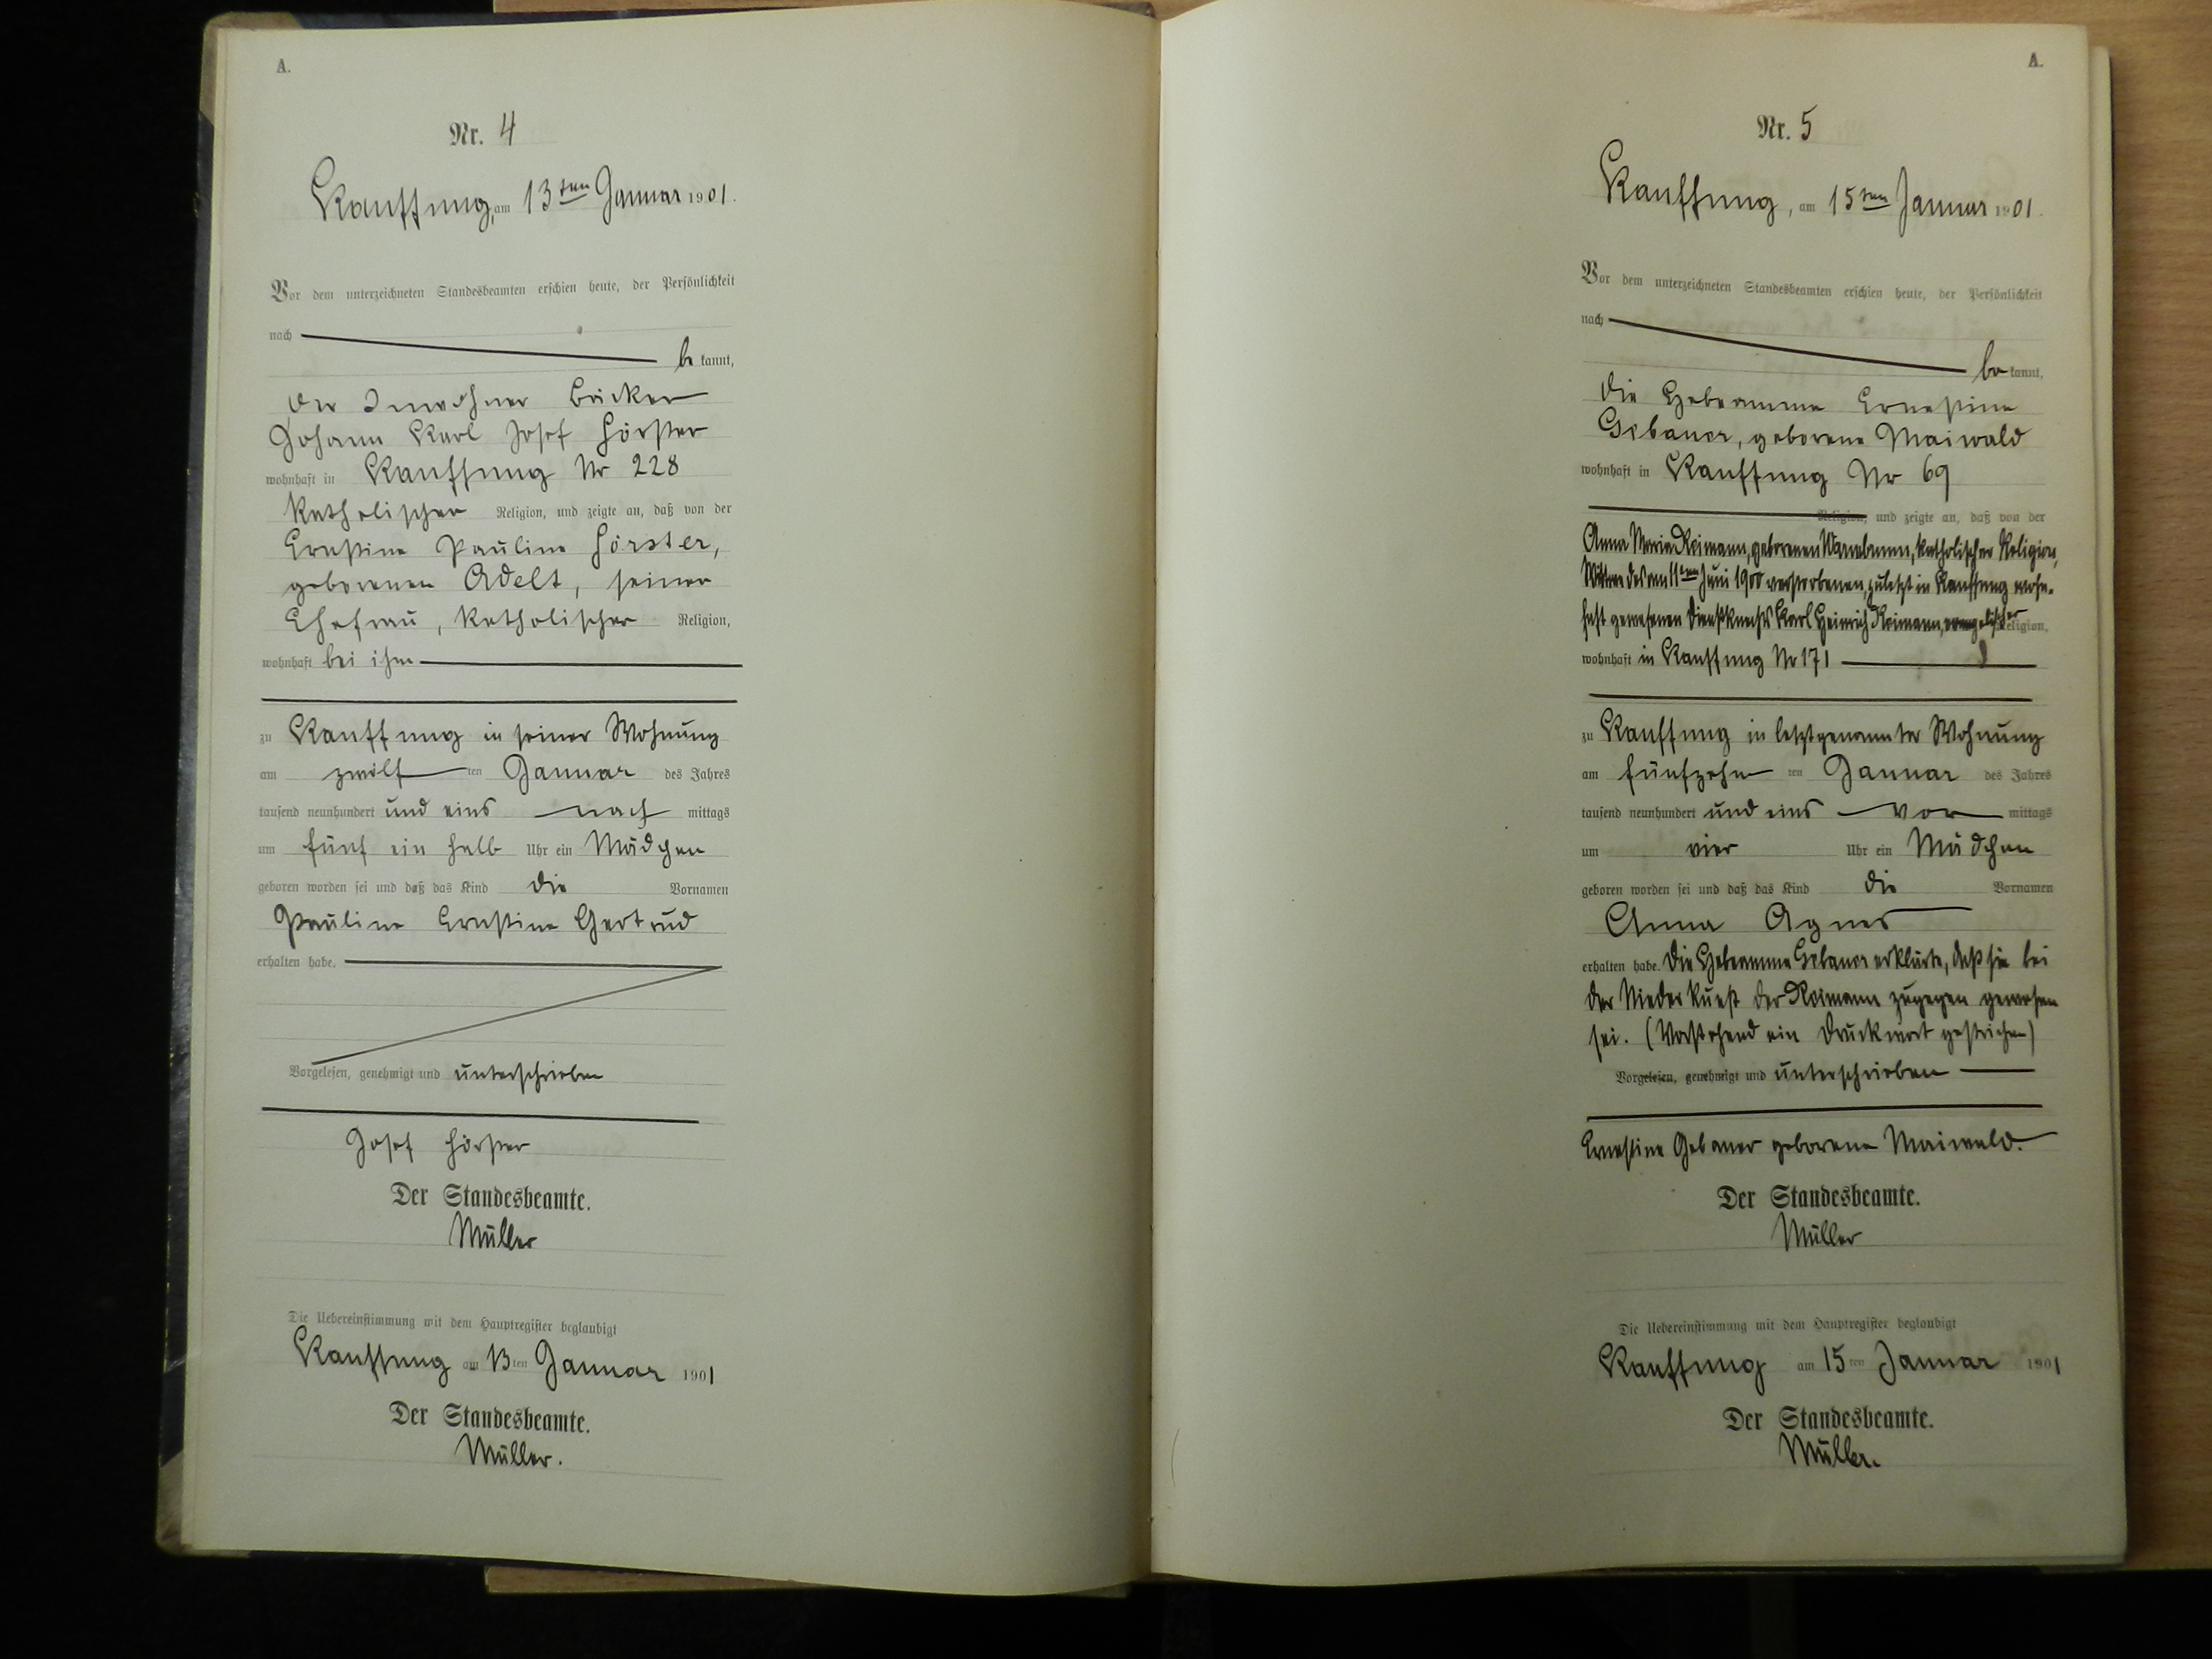 A.
Nr. 4
Kauffung, am 13ten Januar 1901.
Vor dem unterzeichneten Standesbeamten erschien heute, der Persönlichkeit
nach
be kannt,
der Inwohner Bäcker
Johann Karl Josef Förster
wohnhaft in Kauffung Nr 228
katholischer Religion, und zeigte an, daß von der
Ernstine Pauline Förster,
geborenen Adelt, seiner
Ehefrau, katholischer Religion,
wohnhaft bei ihm
zu Kauffung in seiner Wohnung
am zwölf ten Januar des Jahres
tausend neunhundert und eins nach mittags
um fünf ein halb Uhr ein Mädchen
geboren worden sei und daß das Kind die Vornamen
Pauline Ernstine Gertrud
erhalten habe.
Vorgelesen, genehmigt und unterschrieben
Josef Förster
Der Standesbeamte.
Müller
Die Uebereinstimmung mit dem Hauptregister beglaubigt
Kauffung am 13ten Januar 1901
Der Standesbeamte.
Müller.
A.
Nr. 5
Kauffung, am 15ten Januar 1901.
Vor dem unterzeichneten Standesbeamten erschien heute, der Persönlichkeit
nach
be kannt,
die Hebeamme Ernestine
Gebauer, geborene Maiwald
wohnhaft in Kauffung Nr 69
Religion, und zeigte an, daß von der
Anna Maria Reimann, geborenen katholischer Religion,
Wittwe des am 11ten Juni 1900 verstorbenen, zuletzt in Kauffung wohn-
haft gewesenen Dienstknechts Karl Heinrich Reimann, evangelischer Religion,
wohnhaft in Kauffung Nr 171
zu Kauffung in letztgenannter Wohnung
am fünfzehn ten Januar des Jahres
tausend neunhundert und eins vor mittags
um vier Uhr ein Mädchen
geboren worden sei und daß das Kind die Vornamen
Anna Agnes
erhalten habe. Die Hebeamme Gebauer erklärte, daß sie bei
der Niederkunft der Reimann zugegen gewesen
sei. (Vorstehend ein Druckwort gestrichen)
Vorgelesen, genehmigt und unterschrieben
Ernestine Gebauer geborene Maiwald.
Der Standesbeamte.
Müller
Die Uebereinstimmung mit dem Hauptregister beglaubigt
Kauffung am 15ten Januar 1901
Der Standesbeamte.
Müller.